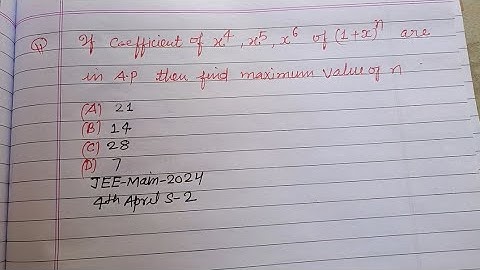 Q) If coefficient of x⁴, x⁵, x⁶ of (1+x)ⁿ are
in A.P then find maximum value of n
(A) 21
(B) 14
(C) 28
(D) 7
JEE-Main-2024
4th April S-2